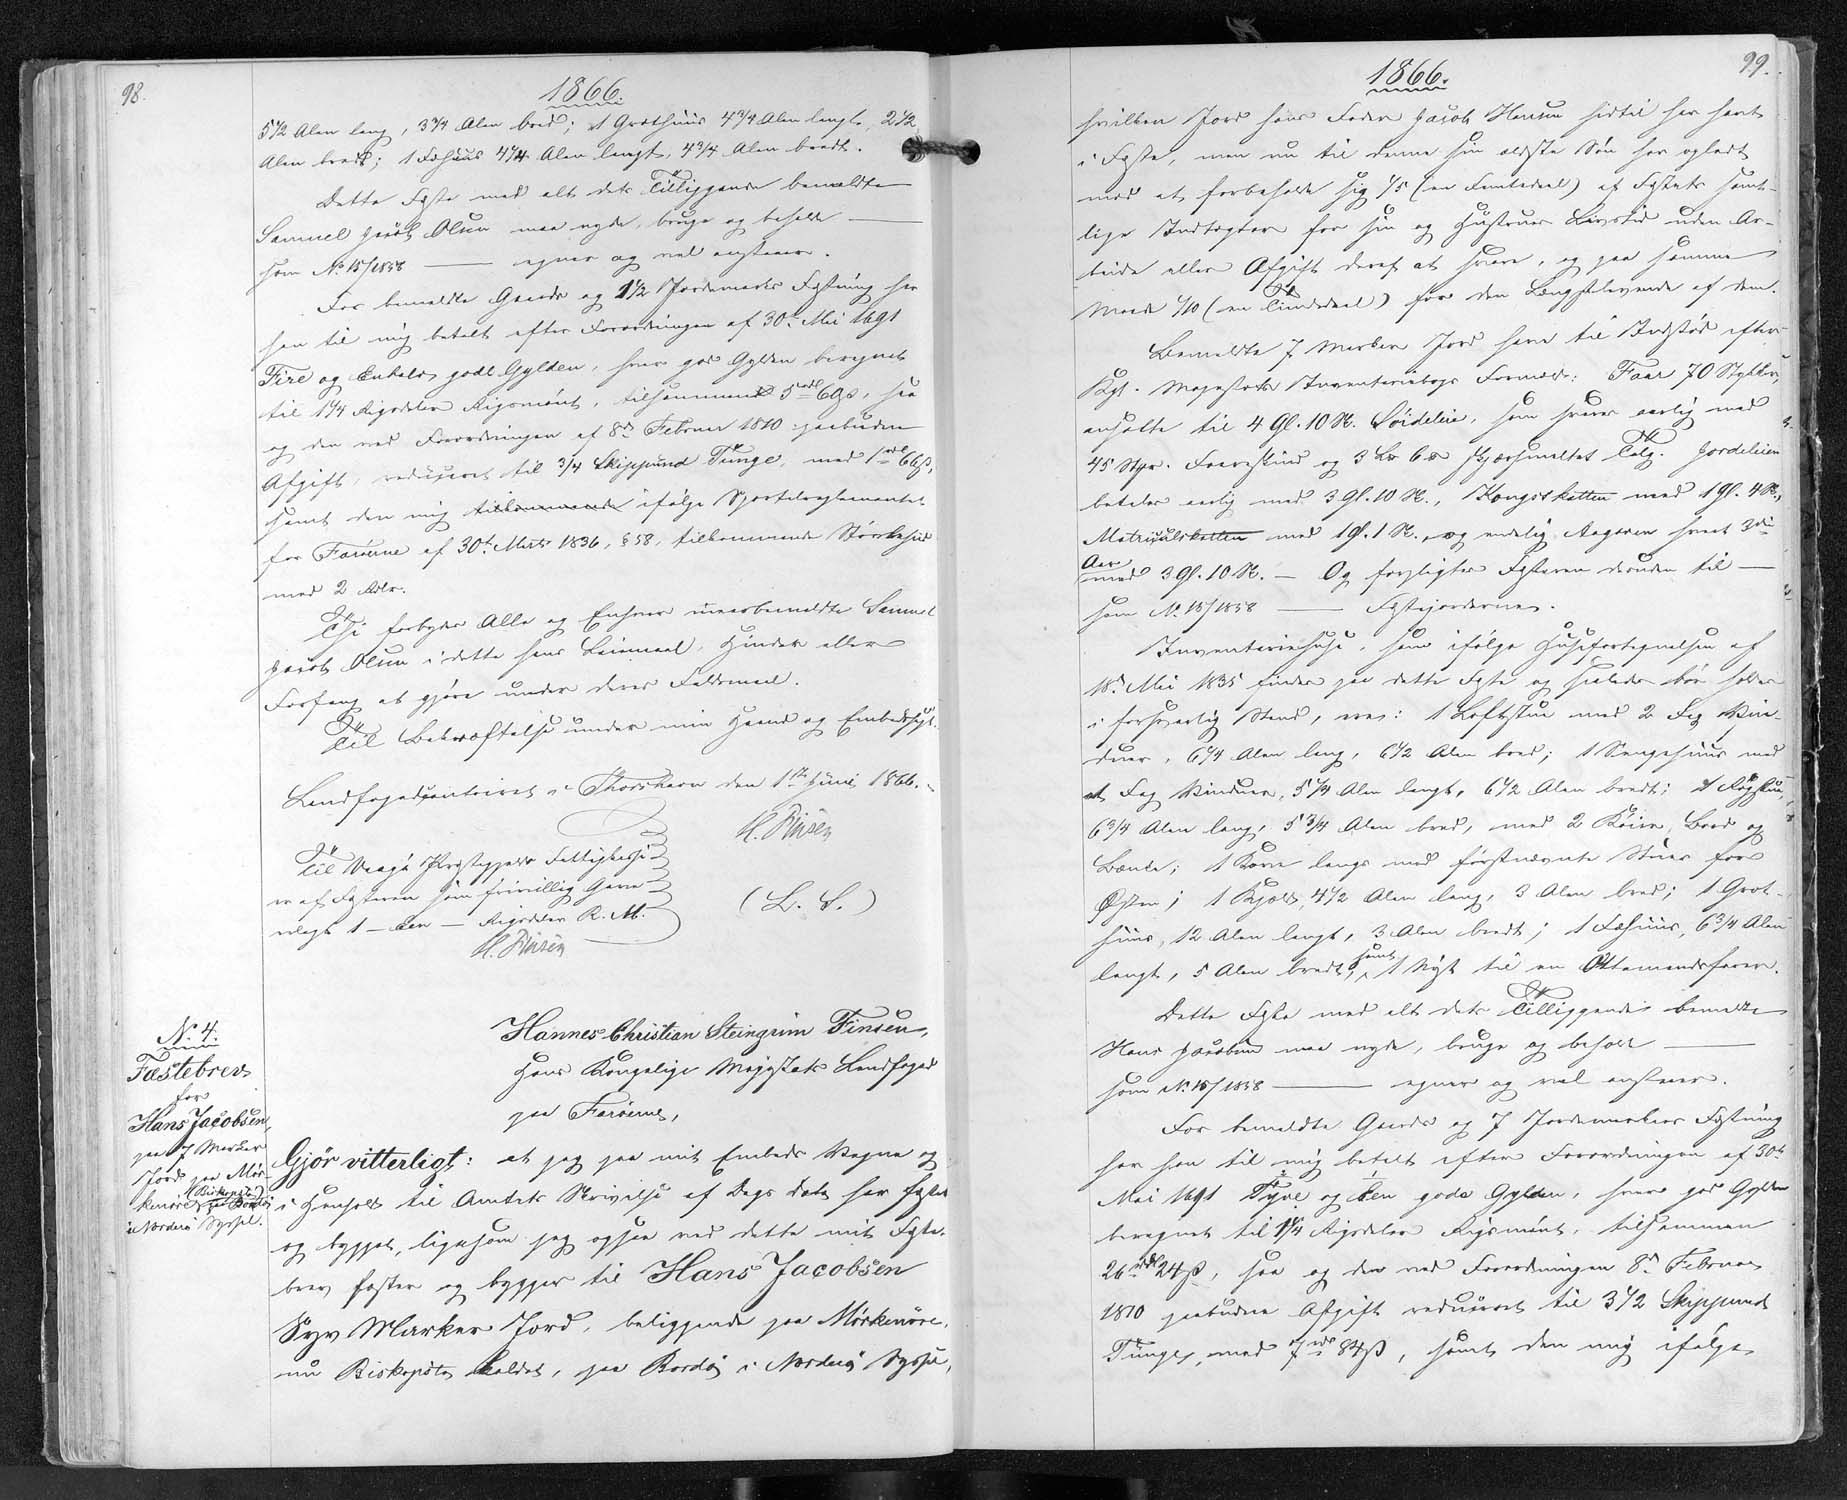 98.
1866.
5 1/2 Alen lang, 3 3/4 Alen bred; 1 Grothuus 4 3/4 Alen langt, 2 1/2
Alen bredt; 1 Fæhuus 4 1/4 Alen langt, 4 3/4 Alen bredt.
Dette Fæste med alt dets Tilliggende bemeldte
Samuel Jacob Olsen maa nyde, bruge og beholde —
som No 15/1858 — egner og vel anstaaer.
For bemeldte Gaards og 1 1/2 Jordemarks Fæstning har
han til mig betalt efter Forordningen af 30te Mai 1691
Fire og Enhalv gode Gylden, hver god Gylden beregnet
til 1 1/4 Rigsdaler Rigsmønt, tilsammen 5 rdl 60 ß, saa
og den ved Forordningen af 8de Februar 1810 paabudne
Afgift, reduceret til 3/4 Skippund Tunge, med 1 rdl 66 ß,
samt den mig tilkommende ifølge Sportelreglementet
for Færøerne af 30te Marts 1836, § 58, tilkommende Størbehed
med 2 Rdlr.
Thi forbydes Alle og Enhver meerbemeldte Samuel
Jacob Olsen i dette hans Leiemaal, Hinder eller
Forfang at gjøre under deres Faldsmaal.
Til Bekræftelse under min Haand og Embedssegl.
Landfogedcontoiret i Thorshavn den 1ste Juni 1866.
H. Finsen
(L. S.)
Til Vaagø Præstegjelds Fattigkasse
er af Fæsteren som frivillig Gave
erlagt 1 — Een — Rigsdaler R. M.
H. Finsen
No. 4.
Fæstebrev
for
Hans Jacobsen,
paa 7 Marker
Jord paa Mør-
kenøre (Biskopstø)
paa Bordø
i Norderø Syssel.
Hannes Christian Steingrim Finsen,
Hans Kongelige Majestæts Landfoged
paa Færøerne,
Gjør vitterligt: at jeg paa mit Embeds Vegne og
i Henhold til Amtets Skrivelse af Dags Dato har fæstet
og bygget, ligesom jeg ogsaa ved dette mit Fæste-
brev fæster og bygger til Hans Jacobsen
Syv Marker Jord, beliggende paa Mørkenøre,
nu Biskopstø kaldet, paa Bordø i Norderø Syssel,
99.
1866.
hvilken Jord hans Fader Jacob Hansen hidtil har havt
i Fæste, men nu til denne sin ældste Søn har opladt
mod at forbeholde sig 1/5 (en Femtedeel) af Fæstets samt-
lige Indtægter for sin og Hustrues Livstid uden Ar-
beide eller Afgift deraf at svare, og paa samme
Maade 1/10 (en Tiendedeel) for den Længstlevende af dem.
Bemeldte 7 Marker Jord have til Indstød efter
Kgl. Majestæts Inventariebogs Formeld: Faar 70 Stykker,
ansatte til 4 Gl. 10 Sk. Søideleie, som svares aarlig med
45 Stpr. Faareskind og 3 L℔ 6 ℔ skjærsmeltet Talg. Jordeleien
betales aarlig med 3 Gl. 10 Sk., Kongsskatten med 1 Gl. 4 Sk.,
Matriculskatten med 1 Gl. 1 Sk., og endelig Aagaven hvert 3die
Aar
med 3 Gl. 10 Sk. — Og forpligtes Fæsteren desuden til —
som No 15/1858 — Fæstejorderne.
Inventariehuse, som ifølge Husefortegnelsen af
18de Mai 1835 findes paa dette Fæste og saaledes bør holdes
i forsvarlig Stand, ere: 1 Loftstue med 2 Fag Vin-
duer, 6 1/4 Alen lang, 6 1/2 Alen bred; 1 Sengehuus med
et Fag Vinduer, 5 1/4 Alen langt, 6 1/2 Alen bredt; 1 Røgstue,
6 3/4 Alen lang, 5 3/4 Alen bred, med 2 Køier, Bord og
Bænke; 1 Kove langs med førstnævnte Stuer for
Østen; 1 Kjeld, 4 1/2 Alen lang, 3 Alen bred; 1 Grot-
huus, 12 Alen langt, 3 Alen bredt; 1 Fæhuus, 6 3/4 Alen
langt, 5 Alen bredt, samt 1 Nøst til en Ottemandsfarer.
Dette Fæste med alt dets Tilliggende bemeldte
Hans Jacobsen maa nyde, bruge og beholde —
som No 15/1858 — egner og vel anstaaer.
For bemeldte Gaards og 7 Jordemarkers Fæstning
har han til mig betalt efter Forordningen af 30te
Mai 1691 Tyve og Een gode Gylden, hver god Gylden
beregnet til 1 1/4 Rigsdaler Rigsmønt, tilsammen
26 rdl 24 ß, saa og den ved Forordningen 8de Februar
1810 paabudne Afgift reduceret til 3 1/2 Skippund
Tunge, med 7 rdl 84 ß, samt den mig ifølge